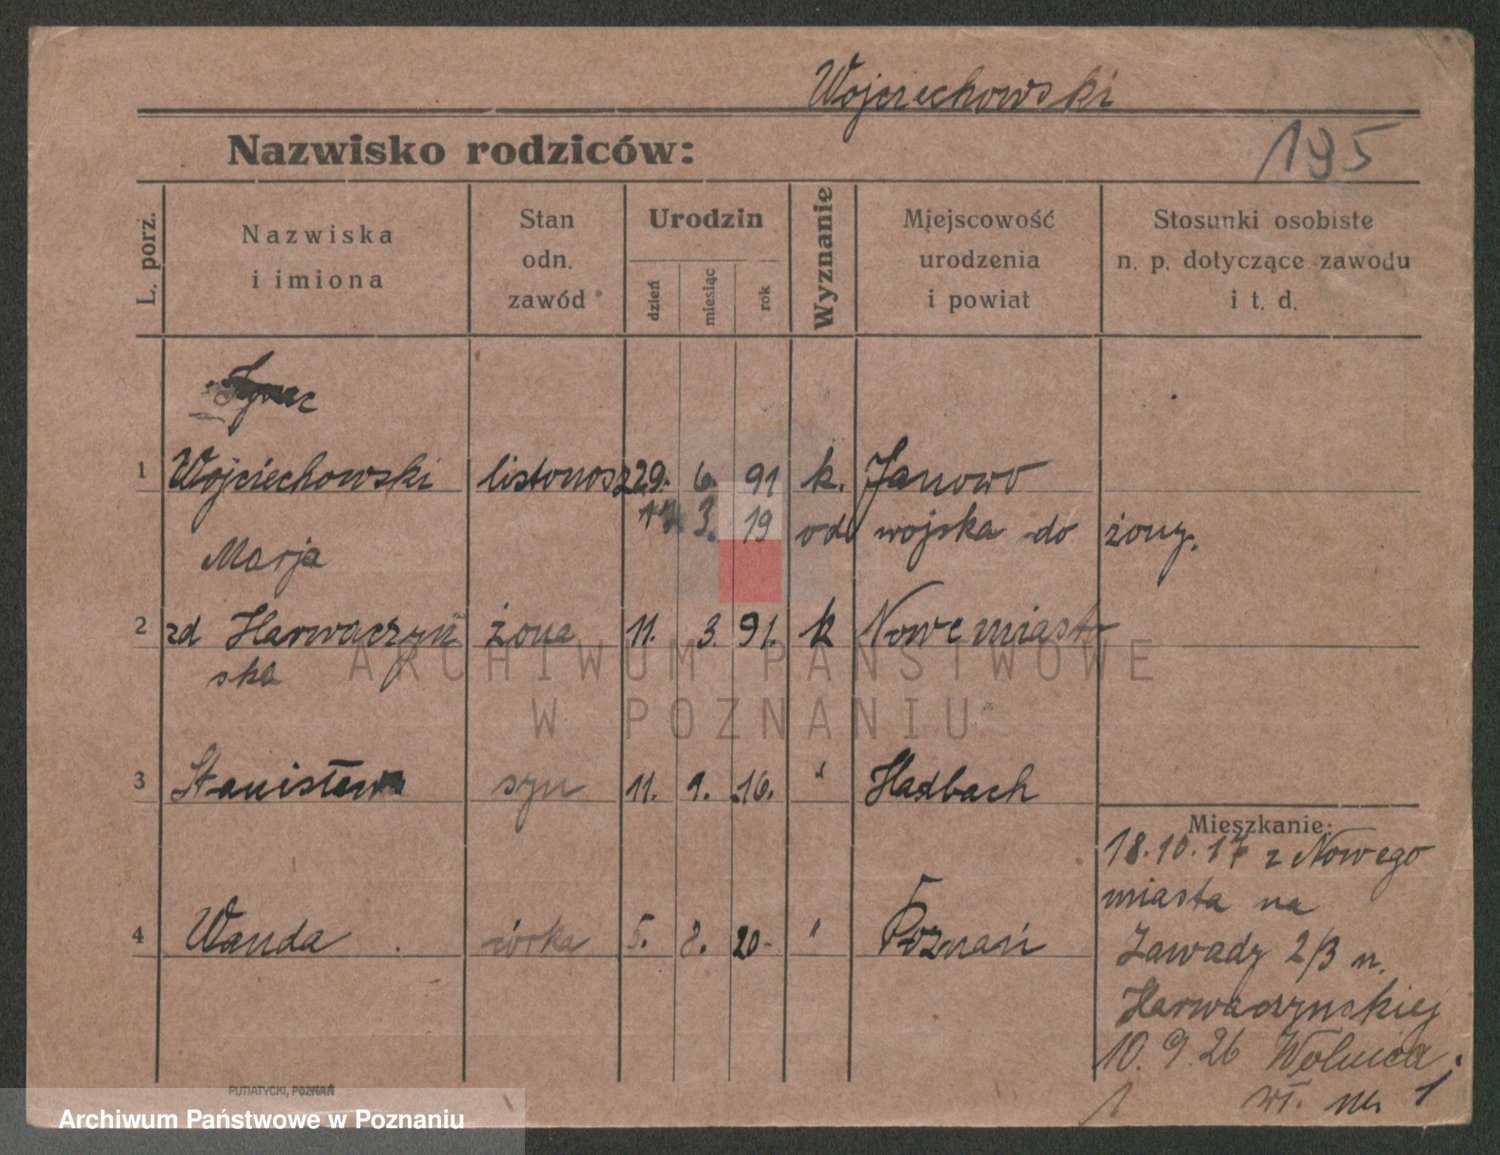 Wojciechowski
195
Nazwisko rodziców:
L. porz.
Nazwiska
i imiona
Stan
odn.
zawód
Urodzin
dzień
miesiąc
rok
Wyznanie
Miejscowość
urodzenia
i powiat
Stosunki osobiste
n. p. dotyczące zawodu
i t. d.
Ignac
1 Wojciechowski listonosz 29. 6. 91 k. Janowo
3. 19 od wojska do żony.
Marja
2 zd Harwaczyń żona 11. 3. 91. k Nowe miasto
ska
3 Stanisław syn 11. 9. 16. " Hadbach
4 Wanda córka 5. 8. 20 " Poznań
Mieszkanie:
18.10.17 z Nowego
miasta na
Zawady 2/3 n.
Harwaczynskiej
10.9.26 Wolnica
1
PUTIATYCKI, POZNAŃ
ARCHIWUM PAŃSTWOWE
W POZNANIU
Archiwum Państwowe w Poznaniu